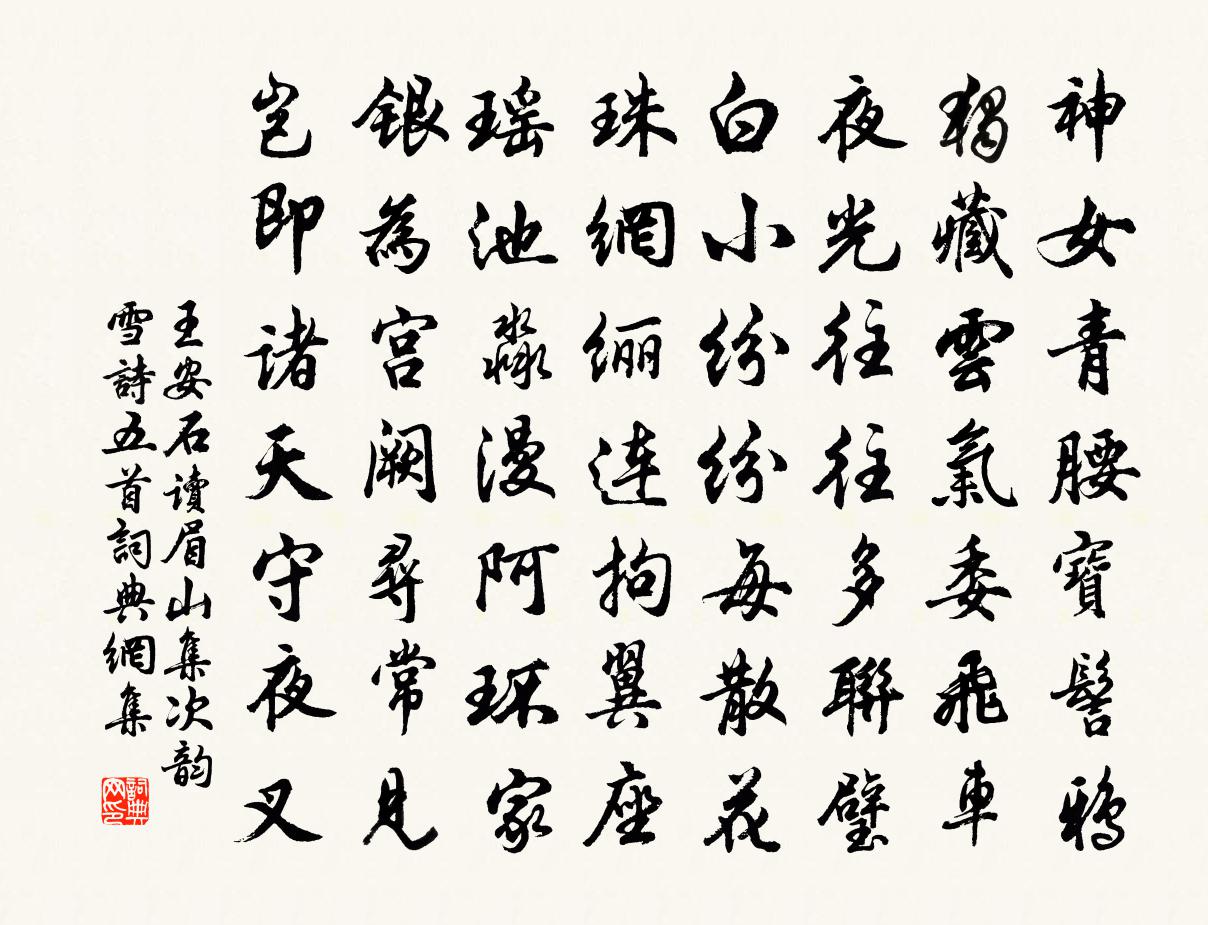 神女青腰寶髻鴉
獨藏雲氣委飛車
夜光往往多聯璧
白小紛紛每散花
珠網纚連拘翼座
瑤池淼漫阿環家
銀為宮闕尋常見
豈即諸天守夜叉
王安石讀眉山集次韵
雪詩五首詞典網集
詞典网印